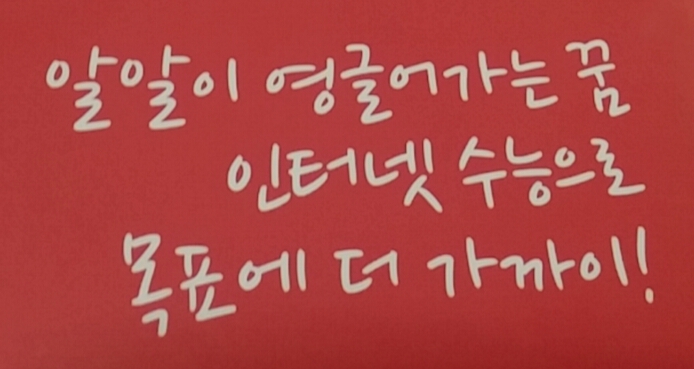 알알이 영글어가는 꿈
인터넷 수능으로
목표에 더 가까이!